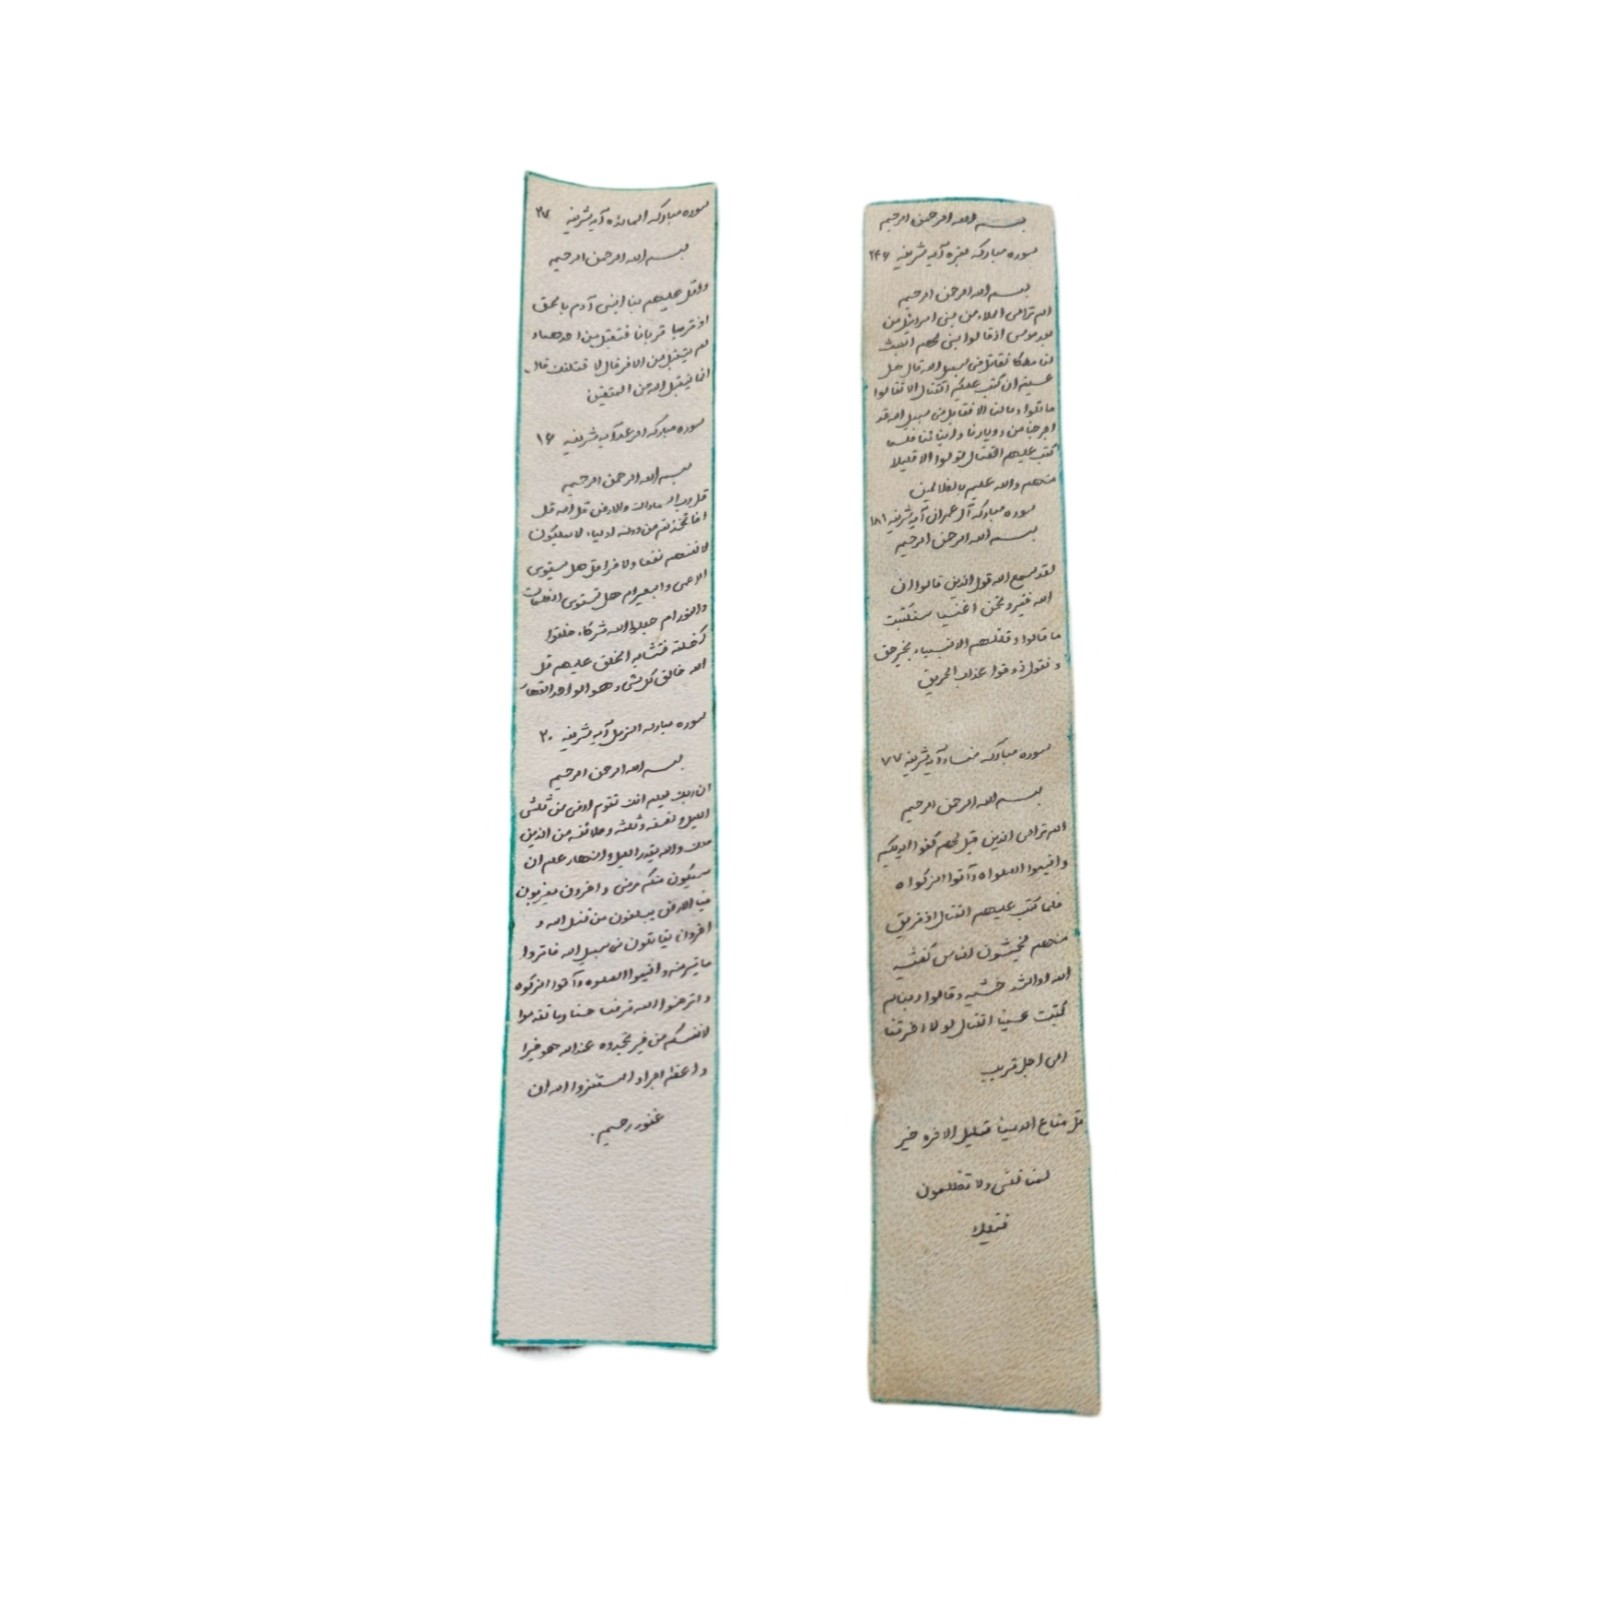 بسم الله الرحمن الرحیم
سوره مبارکه بقره آیه شریفه ۲۴۶
بسم الله الرحمن الرحیم
الم تر الی الملاء من بنی اسرائیل من
بعد موسی اذ قالوا لنبی لهم ابعث
لنا ملکا نقاتل فی سبیل الله قال هل
عسیتم ان کتب علیکم القتال الا تقاتلوا
قالوا و مالنا الا نقاتل فی سبیل الله قد
اخرجنا من دیارنا و ابنائنا فلما
کتب علیهم القتال تولوا الا قلیلا
منهم والله علیم بالظالمین
سوره مبارکه آل عمران آیه شریفه ۱۸۱
بسم الله الرحمن الرحیم
لقد سمع الله قول الذین قالوا ان
الله فقیر و نحن اغنیا سنکتب
ما قالوا و قتلهم الانبیاء بغیر حق
و نقول ذوقوا عذاب الحریق
سوره مبارکه نساء آیه شریفه ۷۷
بسم الله الرحمن الرحیم
الم تر الی الذین قیل لهم کفوا ایدیکم
و اقیموا الصلواه و آتوا الزکواه
فلما کتب علیهم القتال اذ فریق
منهم یخشون الناس کخشیه
الله او اشد خشیه و قالوا ربنا لم
کتبت علینا القتال لو لا اخرتنا
الی اجل قریب
قل متاع الدنیا قلیل الاخره خیر
لمن اتقی ولا تظلمون
فتیلا
سوره مبارکه المائده آیه شریفه ۲۷
بسم الله الرحمن الرحیم
واتل علیهم نبا ابنی آدم بالحق
اذ قربا قربانا فتقبل من احدهما و
لم یتقبل من الاخر قال لا قتلنک قال
انما یتقبل الله من المتقین
سوره مبارکه الرعد آیه شریفه ۱۶
بسم الله الرحمن الرحیم
قل رب السماوات والارض قل الله قل
افاتخذتم من دونه اولیاء لا یملکون
لانفسهم نفعا ولا ضرا قل هل یستوی
الاعمی والبصیر ام هل تستوی الظلمات
والنور ام جعلوا الله شرکاء خلقوا
کخلقه فتشابه الخلق علیهم قل
الله خالق کل شی و هو الواحد القهار
سوره مبارکه المزمل آیه شریفه ۲۰
بسم الله الرحمن الرحیم
ان ربک یعلم انک تقوم ادنی من ثلثی
اللیل و نصفه و ثلثه و طائفه من الذین
معک والله یقدر اللیل و النهار علم ان
سیکون منکم مرضی و اخرون یضربون
فی الارض یبتغون من فضل الله و
اخرون یقاتلون فی سبیل الله فاقروا
ما تیسر منه و اقیموا الصلوه و آتوا الزکوه
و اقرضوا الله قرضا حسنا و ما تقدموا
لانفسکم من خیر تجدوه عندالله هو خیرا
و اعظم اجرا و استغفروا الله ان
غفور رحیم.